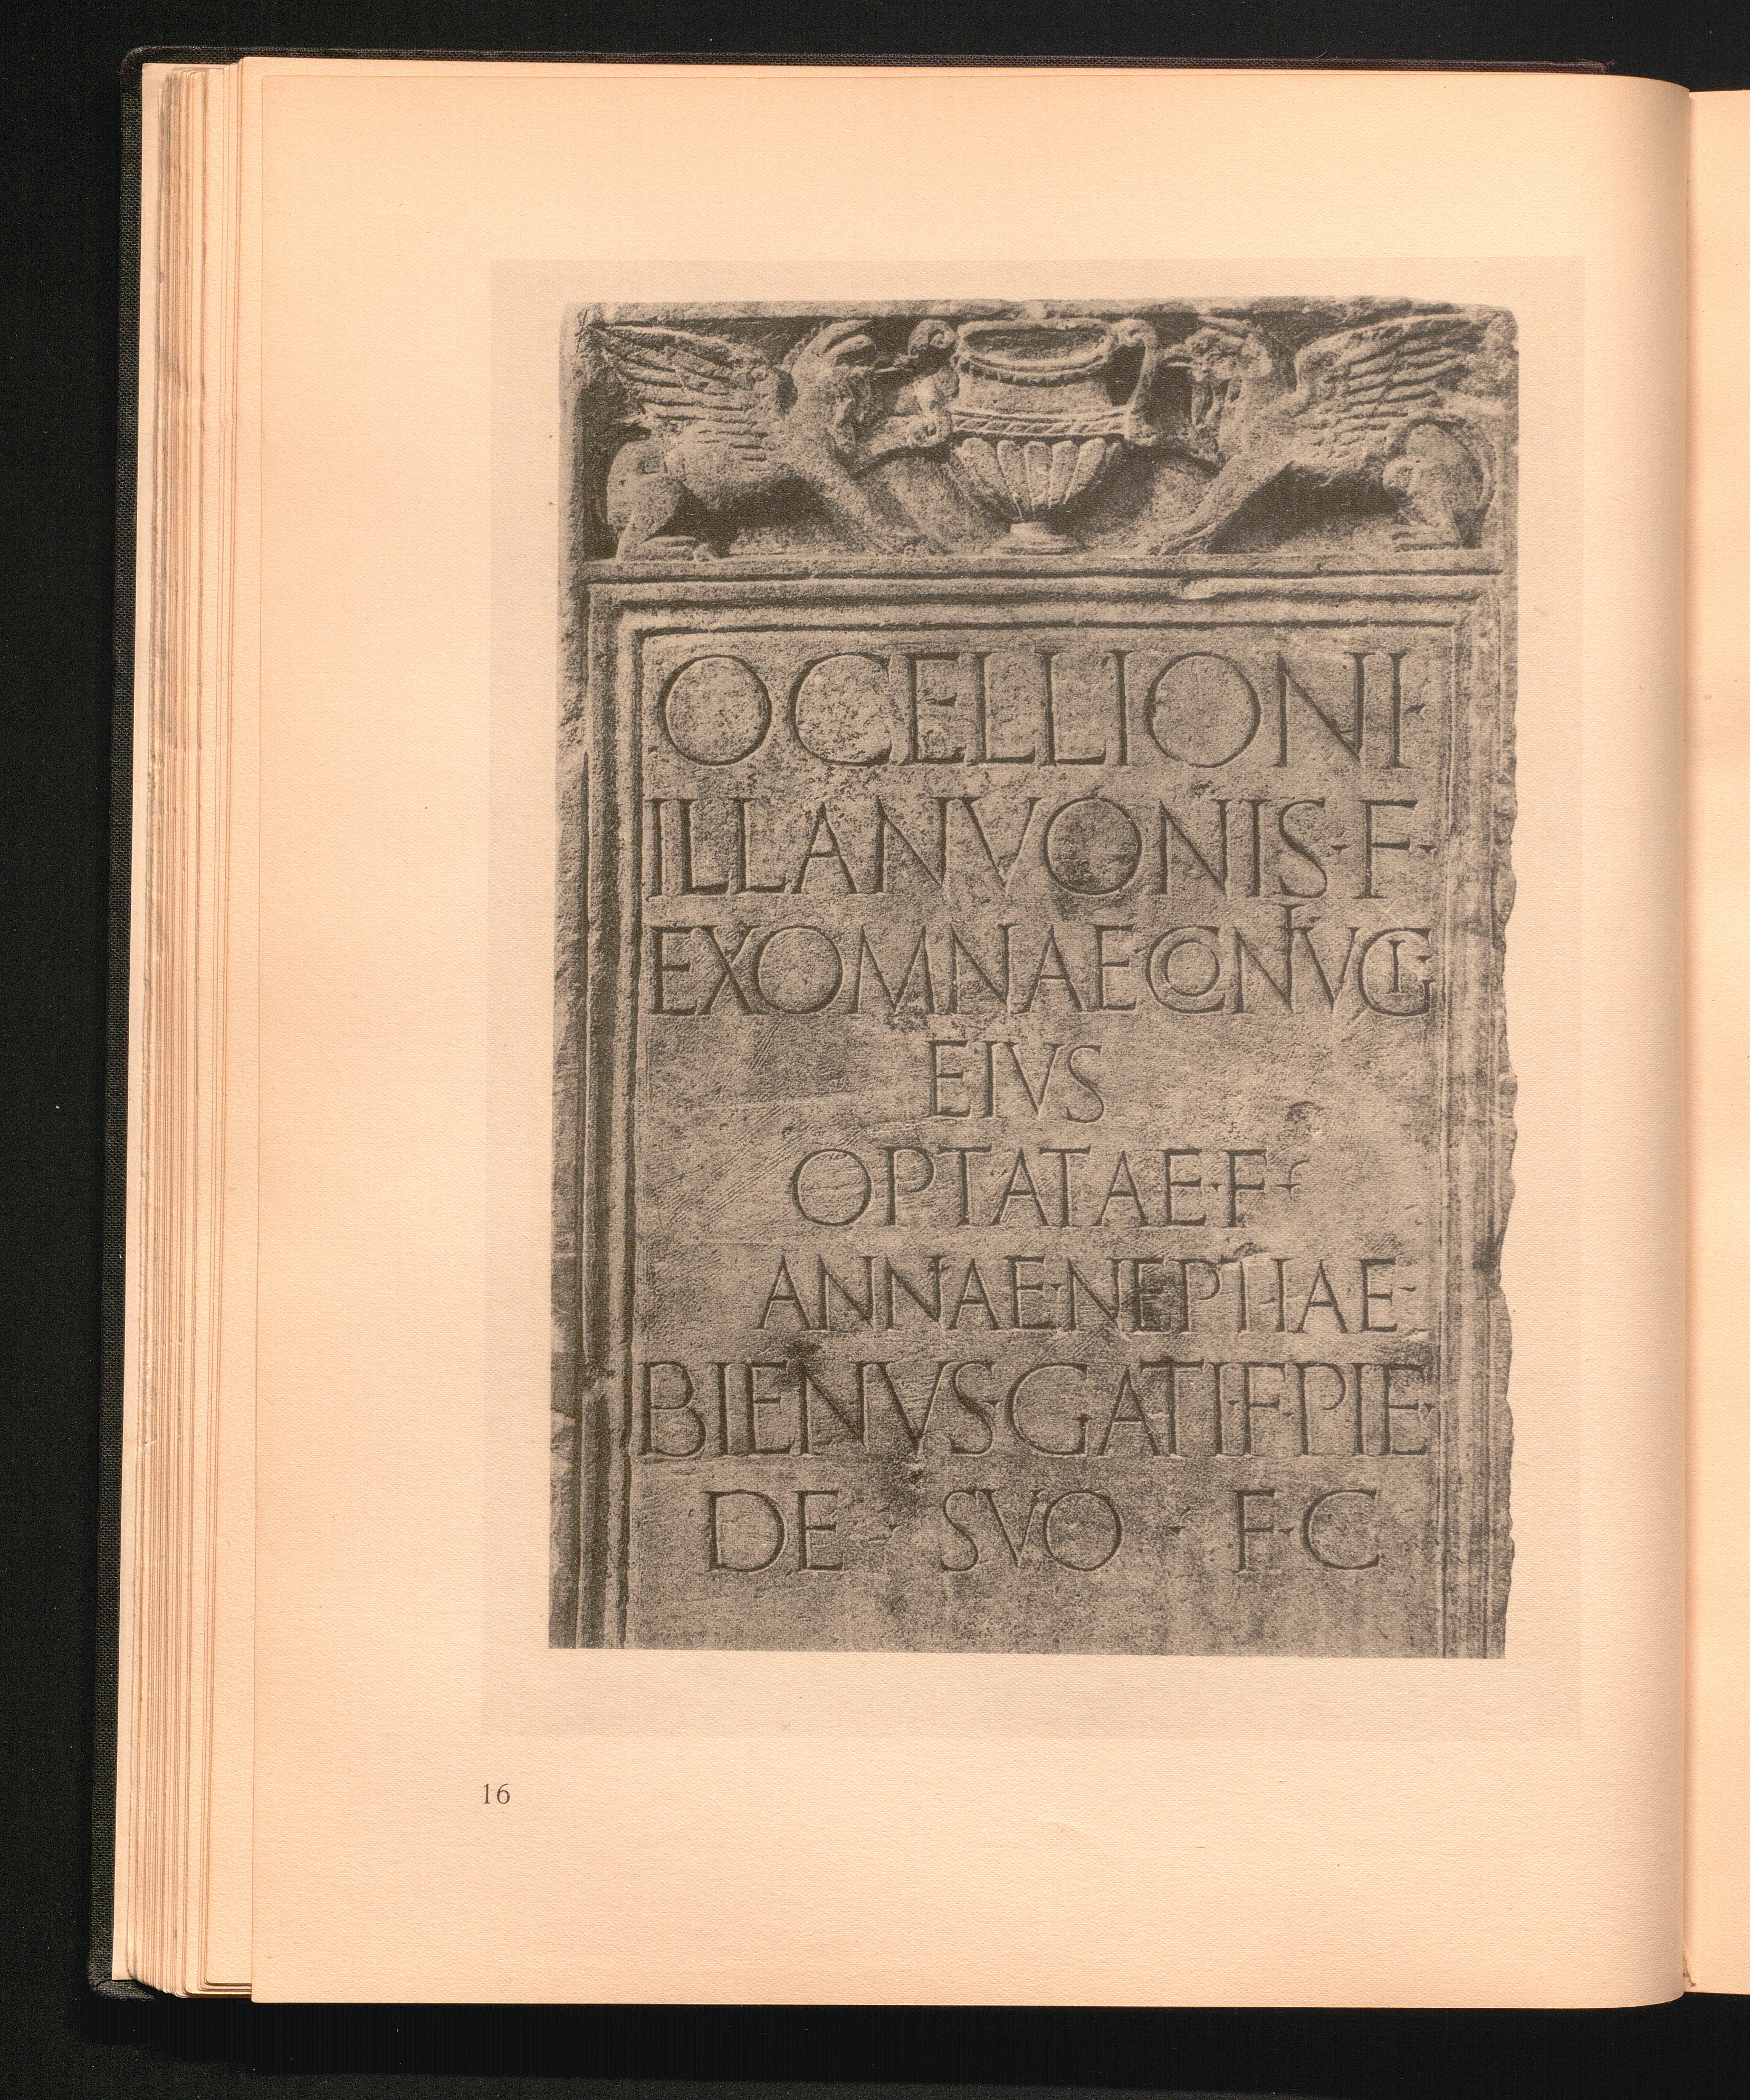 OCELLIONI·
ILLANVONIS·F·
EXOMNAECONIVGI·
EIVS
OPTATAE·F·
ANNAE·NEPTIAE·
BIENVS·GATI·F·PIE·
DE · SVO · F·C
16